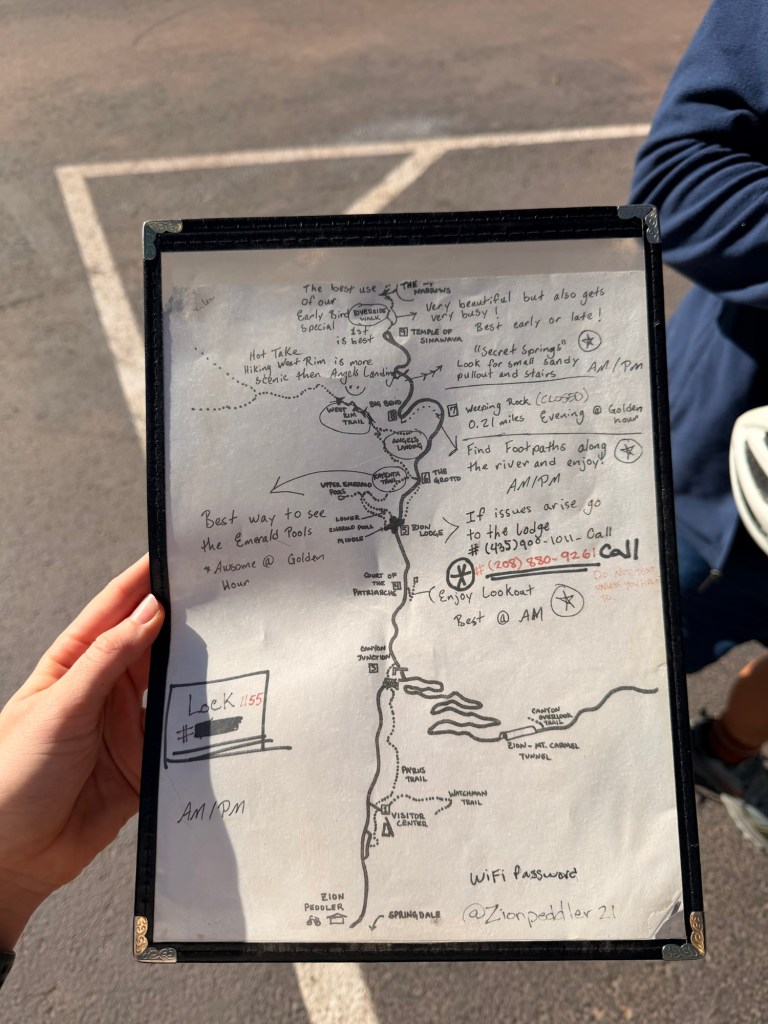 The best use
of our
Early Bird
special
1st
is best
THE
NARROWS
RIVERSIDE
WALK
Very beautiful but also gets
very busy!
Best early or late!
9 TEMPLE OF
SINAWAVA
"Secret Springs"
Look for small sandy
pullout and stairs
AM/PM
Hot Take
Hiking West Rim is more
scenic then Angels Landing
WEST
RIM
TRAIL
BIG BEND
8
7 Weeping Rock (CLOSED)
0.21 miles Evening @ Golden
hour
ANGELS
LANDING
Find Footpaths along
the river and enjoy!
AM/PM
KAYENTA
TRAIL
6 THE
GROTTO
UPPER EMERALD
POOL
LOWER
EMERALD POOL
MIDDLE
Best way to see
the Emerald Pools
* Awsome @ Golden
Hour
5 ZION
LODGE
If issues arise go
to the lodge
# (435) 908-1011 - Call
# (208) 880-9261 Call
COURT OF
THE
PATRIARCHS
4
Enjoy Lookout
Best @ AM
CANYON
JUNCTION
3
Lock 1155
#
AM/PM
CANYON
OVERLOOK
TRAIL
ZION-MT. CARMEL
TUNNEL
PA'RUS
TRAIL
WATCHMAN
TRAIL
1
VISITOR
CENTER
WiFi Password
@Zionpeddler21
ZION
PEDDLER
SPRINGDALE